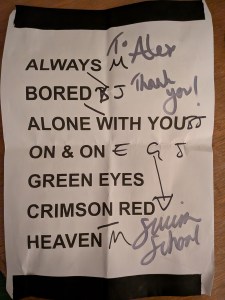 To Alex
ALWAYS M
Thank you!
BORED B J
ALONE WITH YOU
ON & ON E G J
GREEN EYES
CRIMSON RED
HEAVEN M
Swim School